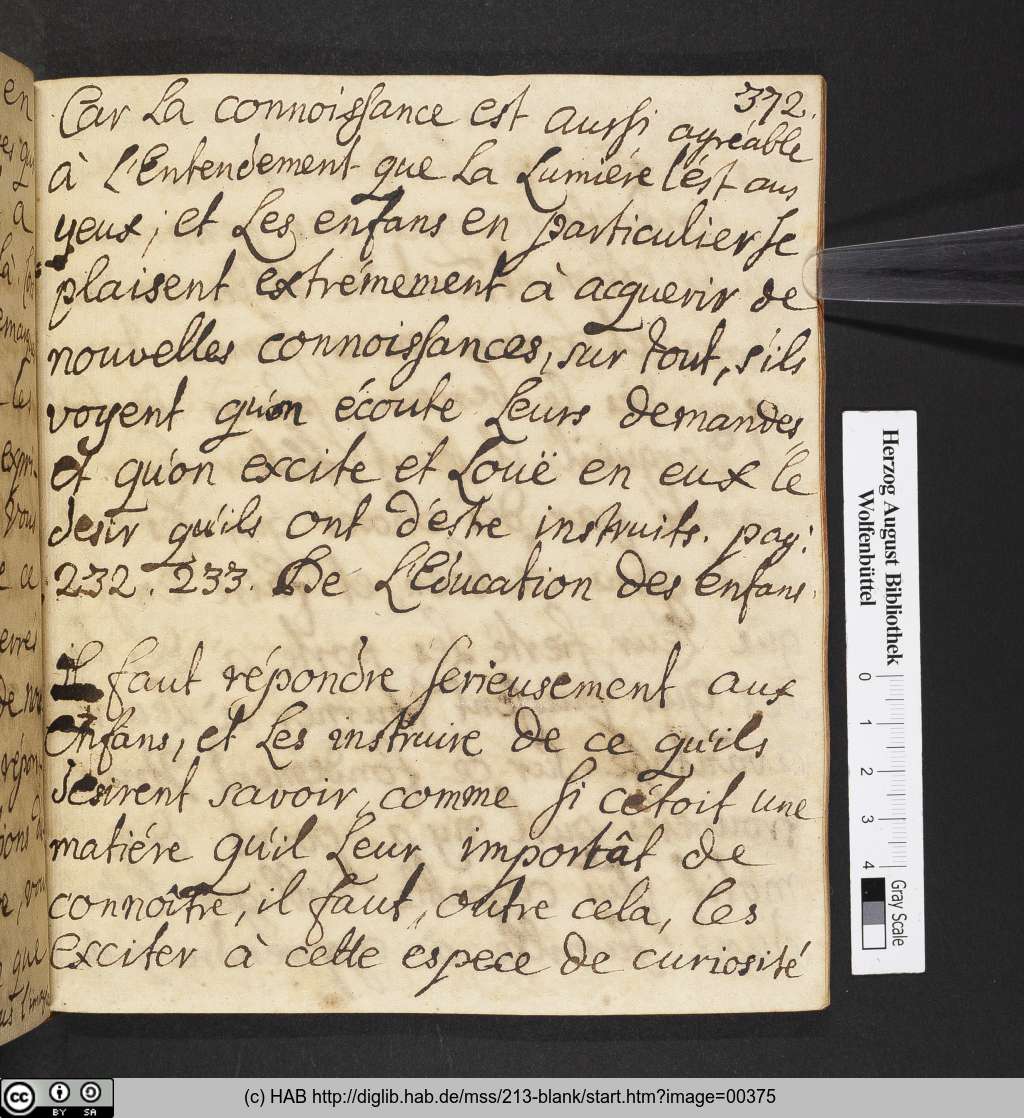 372.
Car La connoissance est aussi agréable
à L'Entendement que La Lumiére l'ést aus
yeux; et Les enfans en particulier se
plaisent extrémement à acquerir de
nouvelles connoissances, sur tout, s'ils
voyent qu'on écoute Leurs demandes,
et qu'on excite et Louë en eux le
desir qu'ils ont d'éstre instruits. pag:
232. 233. De L'Education des enfans.
il faut répondre serieusement aux
Enfans, et Les instruire de ce qu'ils
desirent savoir, comme si c'étoit une
matiére qu'il Leur importât de
connoître, il faut, outre cela, les
Exciter à cette espece de curiosité
Herzog August Bibliothek
Wolfenbüttel
0 1 2 3 4
Gray Scale
cc BY SA
(c) HAB http://diglib.hab.de/mss/213-blank/start.htm?image=00375